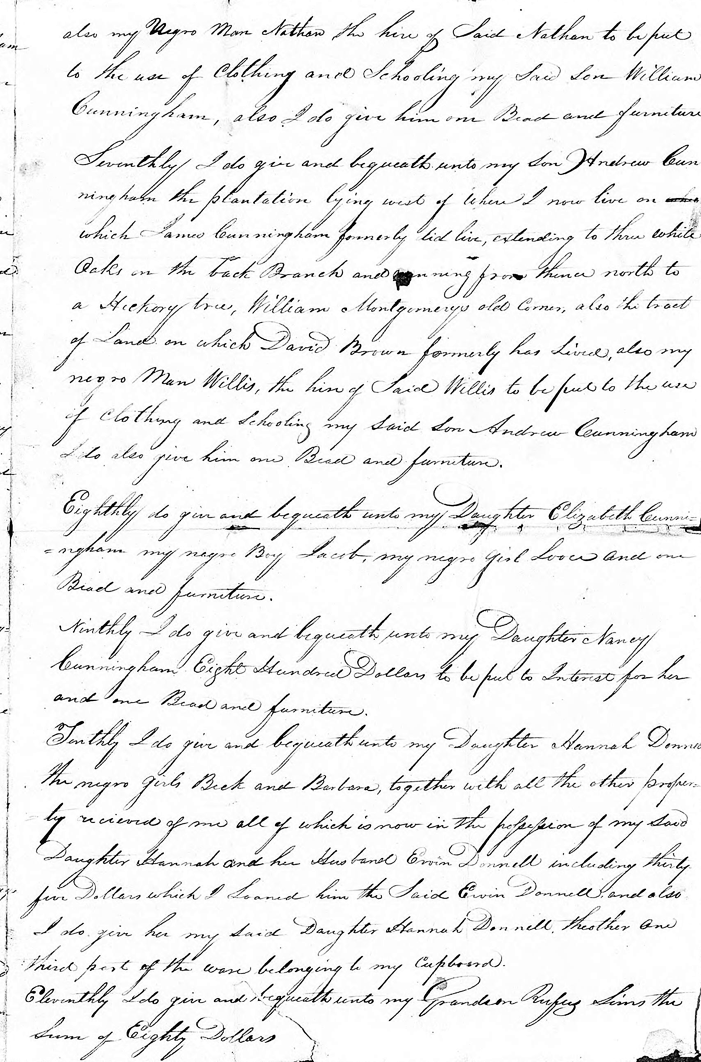 also my Negro Man Nathan the hire of Said Nathan to be put
to the use of Clothing and Schooling my Said Son William
Cunningham, also I do give him one Bead and furniture
Seventhly I do give and bequeath unto my Son Andrew Cun
ningham the plantation lying west of where I now live on
which James Cunningham formerly did live, extending to three white
Oaks on the back Branch and running from thence north to
a Hickory tree, William Montgomerys old Corner, also the tract
of Land on which David Brown formerly has Lived, also my
negro Man Willis, the hire of Said Willis to be put to the use
of Clothing and Schooling my Said Son Andrew Cunningham
I do also give him one Bead and furniture.
Eighthly do give and bequeath unto my Daughter Elizabeth Cunni=
=ngham my negro Boy Jacob, my negro girl and one
Bead and furniture.
Ninthly I do give and bequeath unto my Daughter Nancy
Cunningham Eight Hundred Dollars to be put to Interest for her
and one Bead and furniture.
Tenthly I do give and bequeath unto my Daughter Hannah Donne
the negro girls Beck and Barbara, together with all the other proper=
ty recieved of me all of which is now in the possession of my Said
Daughter Hannah and her Husband Erwin Donnell including thirty
five Dollars which I Loaned him the Said Erwin Donnell, and also
I do give her my said Daughter Hannah Donnell the other one
third part of the ware belonging to my Cupboard.
Eleventhly I do give and bequeath unto my Grandson Rufus Sims the
Sum of Eighty Dollars